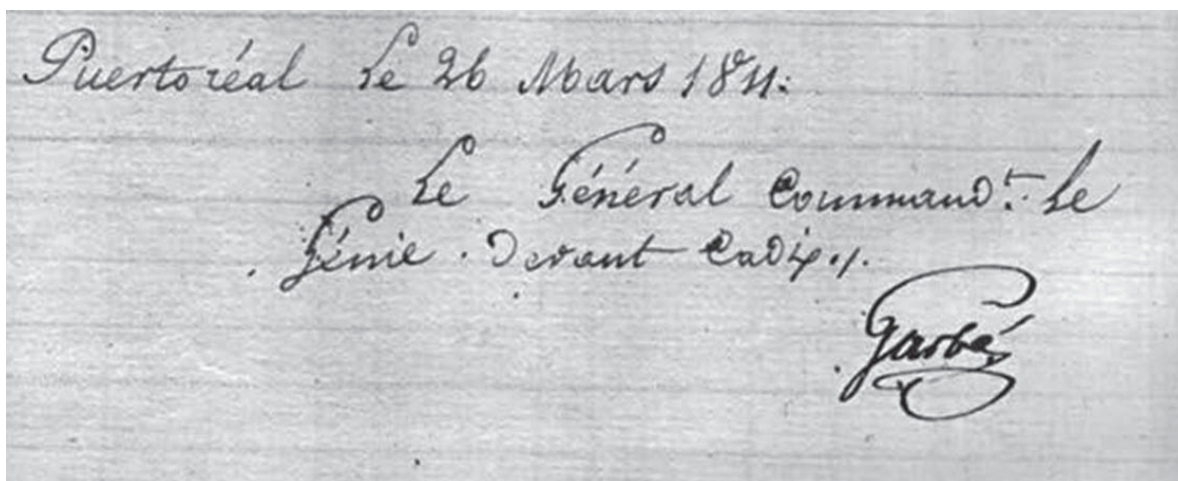 Puertoréal Le 26 Mars 1811.
Le Général Command.t Le
Génie. Devant Cadix ./.
Garbé